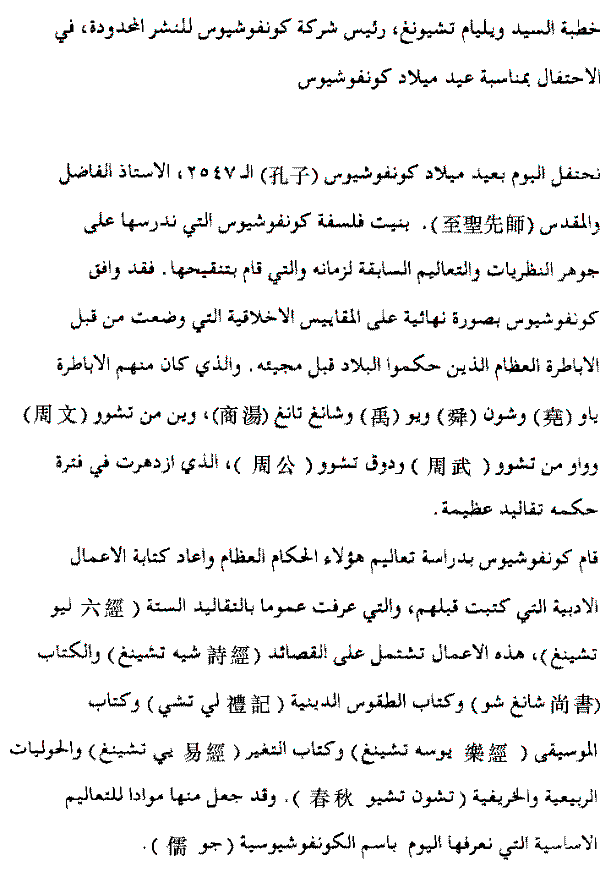 خطبة السيد ويليام تشيونغ، رئيس شركة كونفوشيوس للنشر المحدودة، في
الاحتفال بمناسبة عيد ميلاد كونفوشيوس
نحتفل اليوم بعيد ميلاد كونفوشيوس (孔子) الـ ٢٥٤٧، الاستاذ الفاضل
والمقدس (至聖先師). بنيت فلسفة كونفوشيوس التي ندرسها على
جوهر النظريات والتعاليم السابقة لزمانه والتي قام بتنقيحها. فقد وافق
كونفوشيوس بصورة نهائية على المقاييس الاخلاقية التي وضعت من قبل
الاباطرة العظام الذين حكموا البلاد قبل مجيئه. والذي كان منهم الاباطرة
ياو (堯) وشون (舜) ويو (禹) وشانغ تانغ (商湯)، وين من تشوو (周文)
وواو من تشوو ( 周武 ) ودوق تشوو ( 周公 )، الذي ازدهرت في فترة
حكمه تقاليد عظيمة.
قام كونفوشيوس بدراسة تعاليم هؤلاء الحكام العظام واعاد كتابة الاعمال
الادبية التي كتبت قبلهم، والتي عرفت عموما بالتقاليد الستة ( 六經 ليو
تشينغ)، هذه الاعمال تشتمل على القصائد (詩經 شيه تشينغ) والكتاب
(尚書 شانغ شو) وكتاب الطقوس الدينية ( 禮記 لي تشي) وكتاب
الموسيقى ( 樂經 يوسه تشينغ) وكتاب التغير ( 易經 يي تشينغ) والحوليات
الربيعية والخريفية ( تشون تشيو 春秋 ). وقد جعل منها موادا للتعاليم
الاساسية التي نعرفها اليوم باسم الكونفوشيوسية (جو 儒 ).